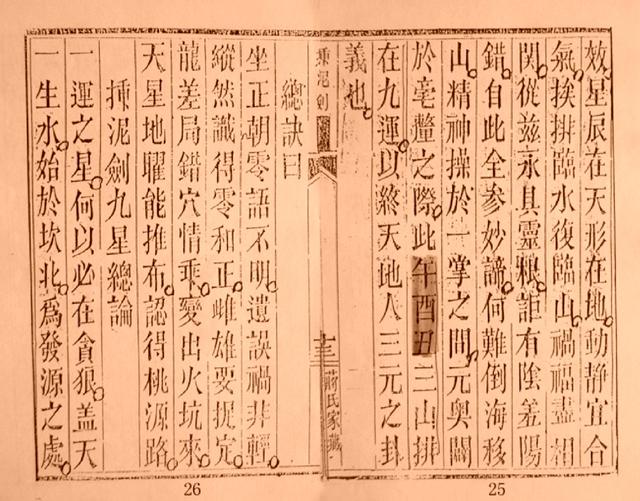 效。星辰在天形在地。動靜宜合
氣。挨排臨水復臨山。禍福盡相
関。從兹永具靈根。詎有陰差陽
錯。自此全參妙諦。何難倒海移
山。精神操於一掌之間。元奧闢
於毫釐之際。此午酉丑三山排
在九運。以終天地人三元之卦
義也。
捶泥劍
十三
蔣氏家藏
總訣曰
坐正朝零語不明。遺誤禍非輕。
縱然識得零和正。雌雄要捉定。
龍差局錯穴情乖。變出火坑來。
天星地曜能推布。認得桃源路。
捶泥劍九星總論
一運之星。何以必在貪狼。蓋天
一生水。始於坎北。爲發源之處。
25
26